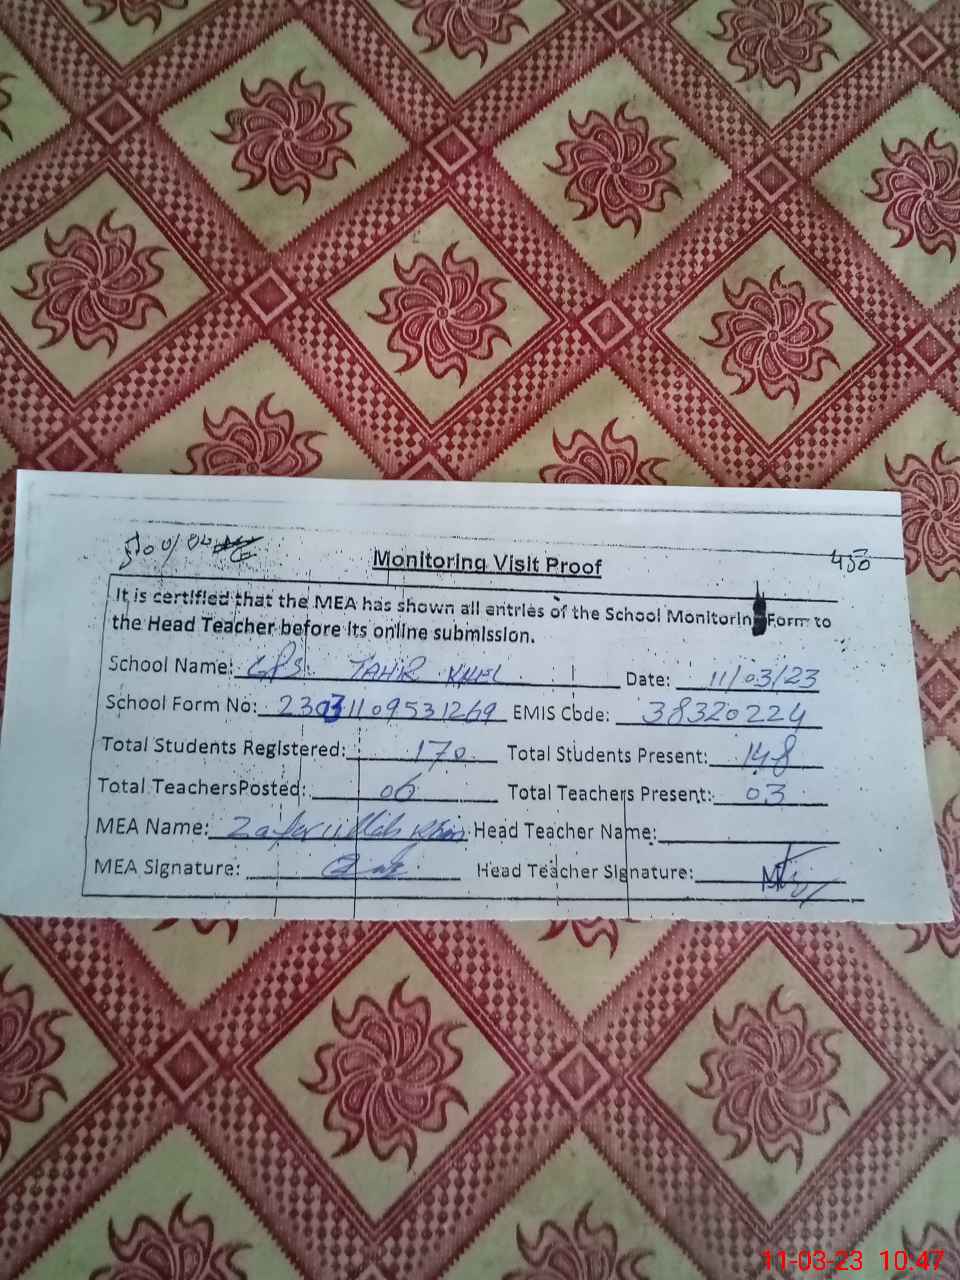 450
Monitoring Visit Proof
It is certified that the MEA has shown all entries of the School Monitoring Form to
the Head Teacher before its online submission.
School Name: GPS TAHIR KHEL Date: 11/03/23
School Form No: 230311109531269 EMIS Code: 38320224
Total Students Registered: 170 Total Students Present: 148
Total TeachersPosted: 06 Total Teachers Present: 03
MEA Name: Zafarullah Khan Head Teacher Name:
MEA Signature: Head Teacher Signature:
11-03-23 10:47